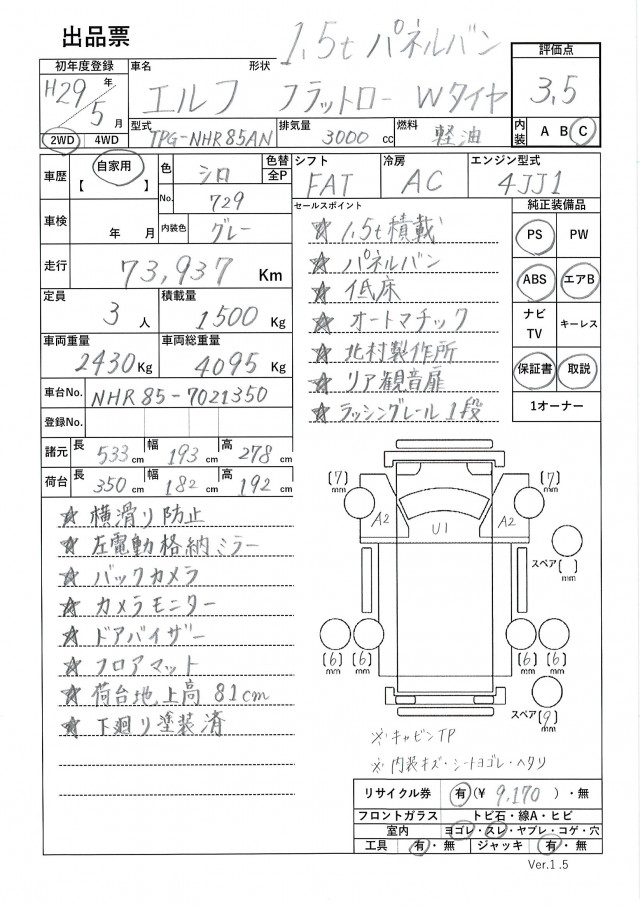 出品票
1,5t パネルバン
初年度登録 車名 形状 評価点
H29年 エルフ フラットロー Wタイヤ 3,5
5月
型式 排気量 燃料
2WD 4WD TPG-NHR85AN 3000cc 軽油 内装 A B C
車歴 自家用 【 】 色 シロ 色替 全P シフト 冷房 エンジン型式
No. 729 FAT AC 4JJ1
車検 年 月 内装色 グレー セールスポイント 純正装備品
☆ 1,5t積載 PS PW
走行 73,937 Km ☆ パネルバン
定員 積載量 ☆ 低床 ABS エアB
3人 1500Kg ☆ オートマチック ナビTV キーレス
車両重量 車両総重量 ☆ 北村製作所
2430Kg 4095Kg ☆ リア観音扉 保証書 取説
車台No. NHR85-7021350 ☆ ラッシングレール1段 1オーナー
登録No.
諸元 長 533cm 幅 193cm 高 278cm
荷台 長 350cm 幅 182cm 高 192cm
☆ 横滑り防止
☆ 左電動格納ミラー
☆ バックカメラ
☆ カメラモニター
☆ ドアバイザー
☆ フロアマット
☆ 荷台地上高81cm
☆ 下廻り塗装済
(7)mm (7)mm
A2 U1 A2
スペア( )mm
(6)mm (6)mm (6)mm (6)mm
スペア(9)mm
※キャビンTP
※内装キズ・シートヨゴレ・ヘタリ
リサイクル券 有(¥ 9,170 )・無
フロントガラス トビ石・線A・ヒビ
室内 ヨゴレ・スレ・ヤブレ・コゲ・穴
工具 有・無 ジャッキ 有・無
Ver.1.5